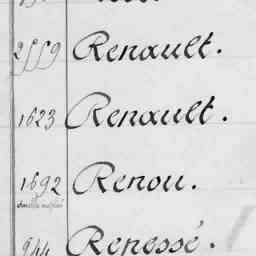 2559 Renault.
1623 Renault.
1692 Renou.
944 Renessé.